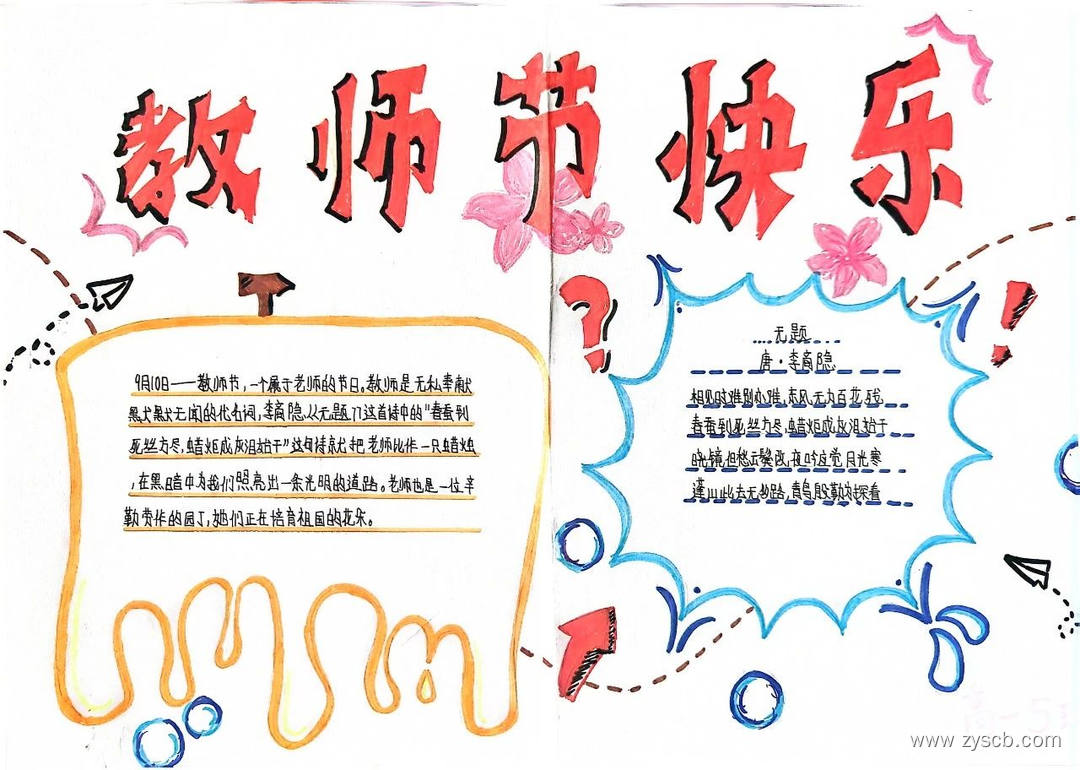 教师节快乐
9月10日——教师节，一个属于老师的节日。教师是无私奉献
默默无闻的代名词，李商隐《无题》这首诗中的“春蚕到
死丝方尽，蜡炬成灰泪始干”这句诗就把老师比作一只蜡烛
，在黑暗中为我们照亮出一条光明的道路。老师也是一位辛
勤劳作的园丁，她们正在培育祖国的花朵。
无题
唐·李商隐
相见时难别亦难，东风无力百花残
春蚕到死丝方尽，蜡炬成灰泪始干
晓镜但愁云鬓改，夜吟应觉月光寒
蓬山此去无多路，青鸟殷勤为探看
www.zyscb.com